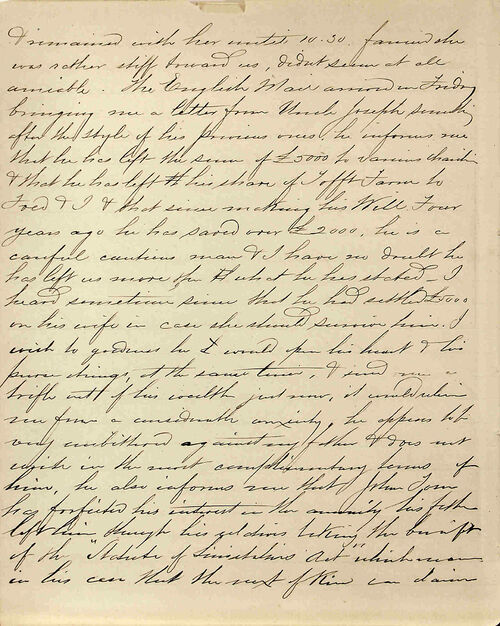 & remained with her until 10.30. fancied she
was rather stiff toward us, didnt seem at all
amiable. The English Mail arrived on Friday
bringing me a letter from Uncle Joseph something
after the style of his previous ones he informs me
that he has left the sum of £5000 to various
& that he has left his share of Tofft Farm to
Fred & I & that since making his Will Four
years ago he has saved over £2000, he is a
careful cautious man & I have no doubt he
has left us more than what he has stated, I
heard sometime since that he had settled £5000
on his wife in case she should survive him. I
wish to goodness he would open his heart & his
purse strings, at the same time, & send me a
trifle out of his wealth just now, it would relieve
me from a considerable anxiety, he appears
very embittered against my father & does not
write in the most complimentary terms of
him, he also informs me that John Tom
has forfeited his interest in the annuity his father
left him through his
of the
in his case that the next of Kin can claim